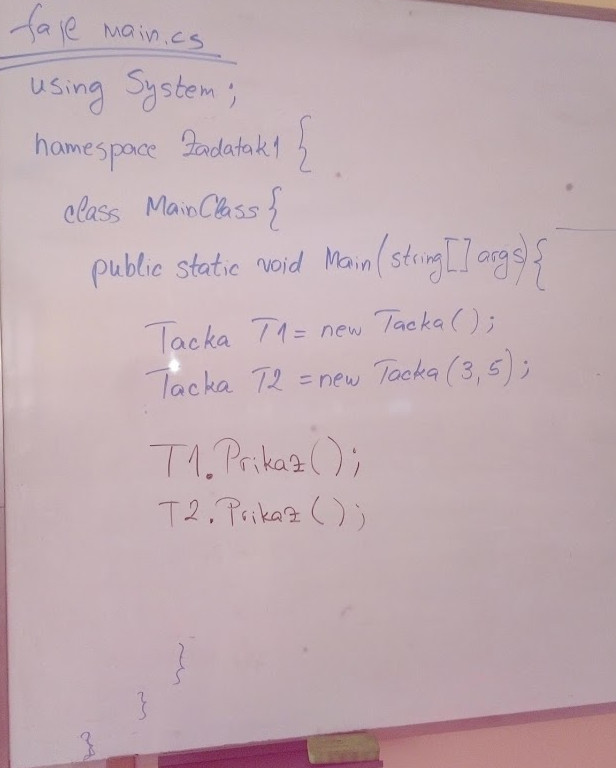 fajl main.cs
using System;
namespace Zadatak1 {
class MainClass {
public static void Main(string[] args) {
Tacka T1 = new Tacka();
Tacka T2 = new Tacka(3,5);
T1.Prikaz();
T2.Prikaz();
}
}
}